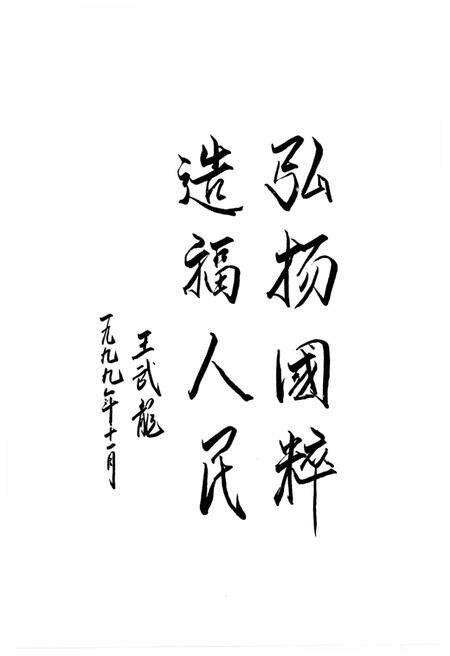 弘扬國粹
造福人民
王武龍
一九九九年十一月